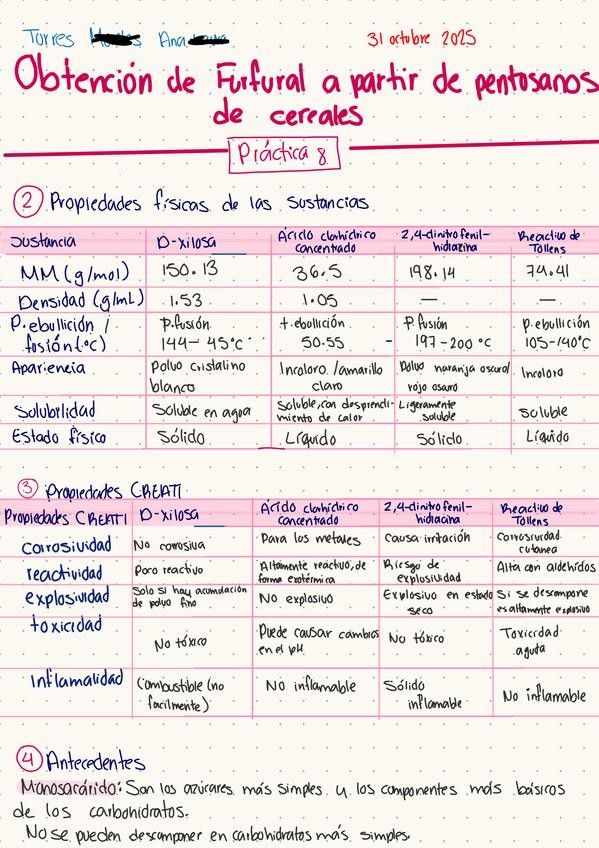 Torres Ana
31 octubre 2025
Obtención de Furfural a partir de pentosanos
de cereales
Práctica 8
2 Propiedades físicas de las sustancias
Sustancia D-xilosa Ácido clorhídrico concentrado 2,4-dinitrofenil-hidrazina Reactivo de Tollens
MM (g/mol) 150.13 36.5 198.14 74.41
Densidad (g/mL) 1.53 1.05 — —
P. ebullición / fusión (°C) P. fusión 144 - 45°C t. ebullición 50.55 P. fusión 197-200 °C P. ebullición 105-140°C
Apariencia Polvo cristalino blanco Incoloro /amarillo claro Polvo naranja oscuro/ rojo oscuro Incoloro
Solubilidad Soluble en agua Soluble, con desprendimiento de calor Ligeramente soluble soluble
Estado físico Sólido Líquido Sólido Líquido
3 Propiedades CRETI
Propiedades CREATI D-xilosa Ácido clorhídrico concentrado 2,4-dinitrofenil-hidracina Reactivo de Tollens
corrosividad No corrosiva Para los metales Causa irritación Corrosividad cutanea
reactividad Poco reactivo Altamente reactivo, de forma exotérmica Riesgo de explosividad Alta con aldehídos
explosividad Solo si hay acumulación de polvo fino No explosivo Explosivo en estado seco Si se descompone es altamente explosivo
toxicidad No tóxico Puede causar cambios en el pH No tóxico Toxicidad aguda
Inflamalidad Combustible (no facilmente) No inflamable Sólido inflamable No inflamable
4 Antecedentes
Monosacárido: Son los azúcares más simples y los componentes más básicos
de los carbohidratos.
No se pueden descomponer en carbohidratos más simples.